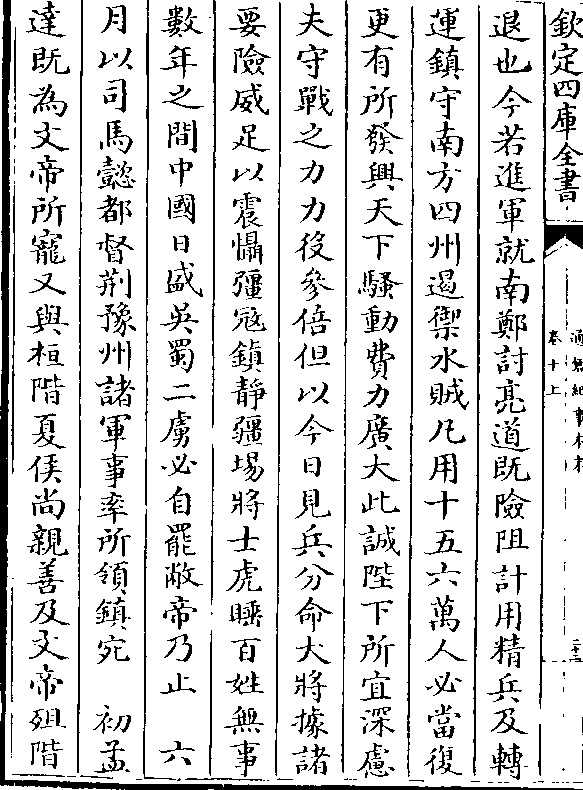 欽定四庫全書
通鑑紀事本末
卷十上
退也今若進軍就南鄭討亮道既險阻計用精兵及轉
運鎮守南方四州遏禦水賊凡用十五六萬人必當復
更有所發興天下騷動費力廣大此誠陛下所宜深慮
夫守戰之力力役參倍但以今日見兵分命大將據諸
要險威足以震懾彊寇鎮靜疆埸將士虎睡百姓無事
數年之間中國日盛吳蜀二虜必自罷敝帝乃止　六
月以司馬懿都督荆豫州諸軍事率所領鎮宛　初孟
達既為文帝所寵又與桓階夏侯尚親善及文帝殂階